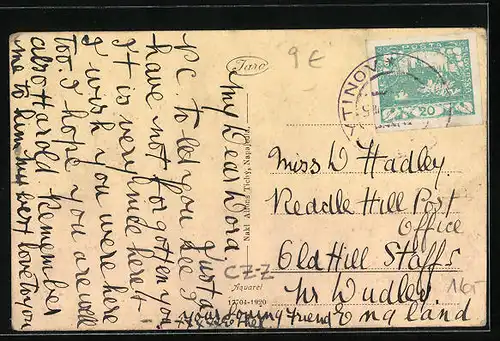 My Dear Dora
Just a
P.C. to let you see I
have not forgotten you
it is very nice here
I wish you were here
too. I hope you are well
also Harold. Remember
me to him my best love to you
your loving Friend
Jaro
9 €
TINOV
POSTA
20
Miss D Hadley
Reddle Hill Post
Office
Old Hill Staffs
Nr Dudley
England
CZ-Z
Nakl. Alois Tichý, Napajedla.
Aquarel
12704-1920